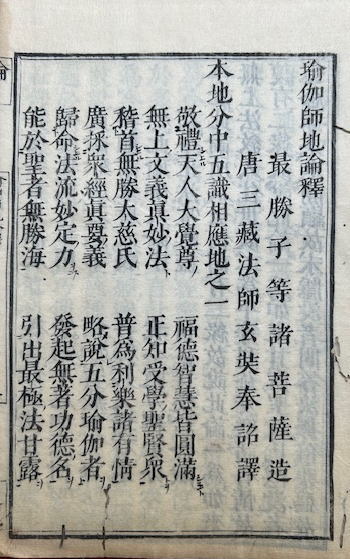 瑜伽師地論釋
最勝子等諸菩薩造
唐三藏法師玄奘奉詔譯
本地分中五識相應地之一
敬禮天人大覺尊　福德智慧皆圓滿
無上文義眞妙法　正知受學聖賢衆
稽首無勝大慈氏　普爲利樂諸有情
廣採衆經眞要義　略說五分瑜伽者
歸命法流妙定力　發起無著功德名
能於聖者無勝海　引出最極法甘露